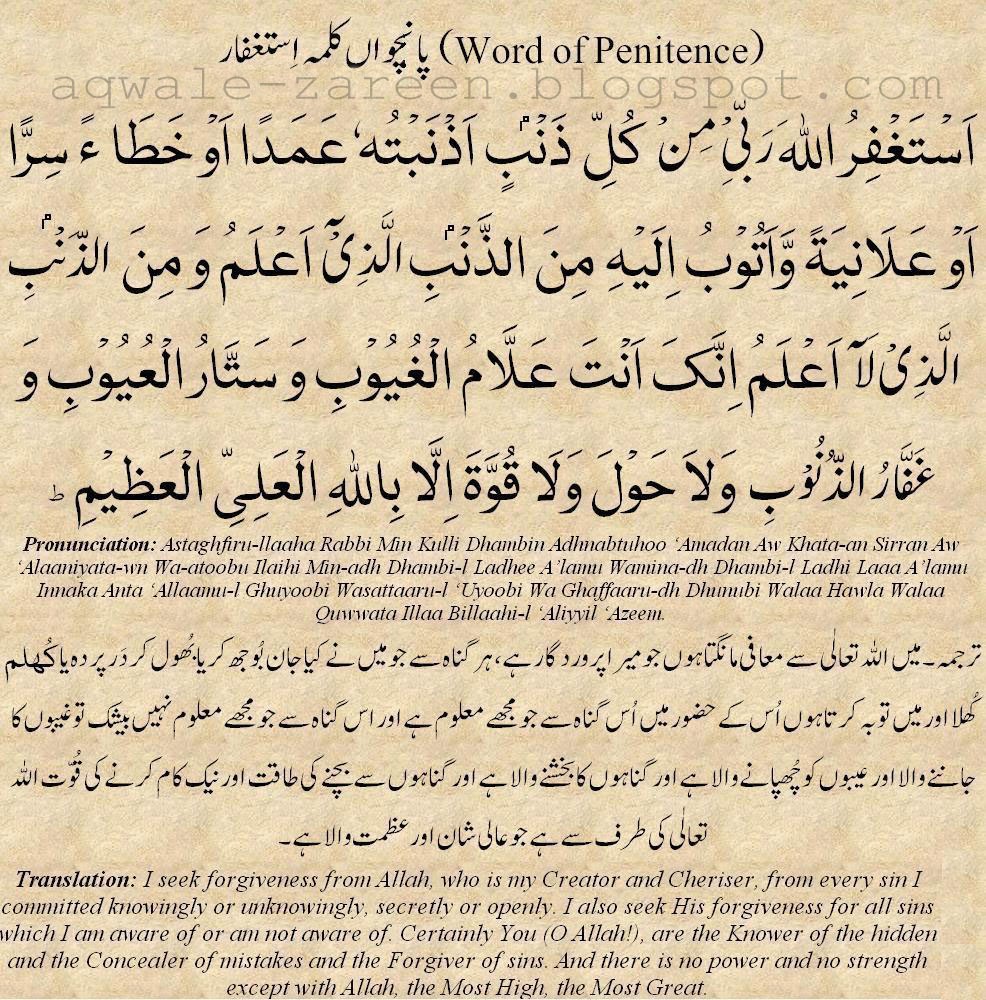 پانچواں کلمہ اِستغفار (Word of Penitence)
aqwale-zareen.blogspot.com
اَسْتَغْفِرُ اللهَ رَبِّیْ مِنْ کُلِّ ذَنْۢبٍ اَذْنَبْتُه‘ عَمَدًا اَوْ خَطَا ءً سِرًّا
اَوْ عَلَانِیَةً وَّاَتُوْبُ اِلَیْهِ مِنَ الذَّنْۢبِ الَّذِیْٓ اَعْلَمُ وَ مِنَ الذَّنْۢبِ
الَّذِیْ لَآ اَعْلَمُ اِنَّکَ اَنْتَ عَلَّامُ الْغُیُوْبِ وَ سَتَّارُ الْعُیُوْبِ وَ
غَفَّارُ الذُّنُوْبِ وَلاَ حَوْلَ وَلَا قُوَّةَ اِلَّا بِاللهِ الْعَلِیِّ الْعَظِیْمِ ؕ
Pronunciation: Astaghfiru-llaaha Rabbi Min Kulli Dhambin Adhnabtuhoo ‘Amadan Aw Khata-an Sirran Aw
‘Alaaniyata-wn Wa-atoobu Ilaihi Min-adh Dhambi-l Ladhee A’lamu Wamina-dh Dhambi-l Ladhi Laaa A’lamu
Innaka Anta ‘Allaamu-l Ghuyoobi Wasattaaru-l ‘Uyoobi Wa Ghaffaaru-dh Dhunubi Walaa Hawla Walaa
Quwwata Illaa Billaahi-l ‘Aliyyil ‘Azeem.
ترجمہ۔ میں اللہ تعالٰی سے معافی مانگتا ہوں جو میرا پروردگار ہے، ہر گناہ سے جو میں نے کیا جان بُوجھ کر یا بُھول کر دَر پردہ یا کُھلم
کُھلا اور میں توبہ کرتا ہوں اُس کے حضور میں اُس گناہ سے جو مجھے معلوم ہے اور اس گناہ سے جو مجھے معلوم نہیں بیشک تو غیبوں کا
جاننے والا اور عیبوں کو چُھپانے والا ہے اور گناہوں کا بخشنے والا ہے اور گناہوں سے بچنے کی طاقت اور نیک کام کرنے کی قُوّت اللہ
تعالٰی کی طرف سے ہے جو عالی شان اور عظمت والا ہے۔
Translation: I seek forgiveness from Allah, who is my Creator and Cheriser, from every sin I
committed knowingly or unknowingly, secretly or openly. I also seek His forgiveness for all sins
which I am aware of or am not aware of. Certainly You (O Allah!), are the Knower of the hidden
and the Concealer of mistakes and the Forgiver of sins. And there is no power and no strength
except with Allah, the Most High, the Most Great.